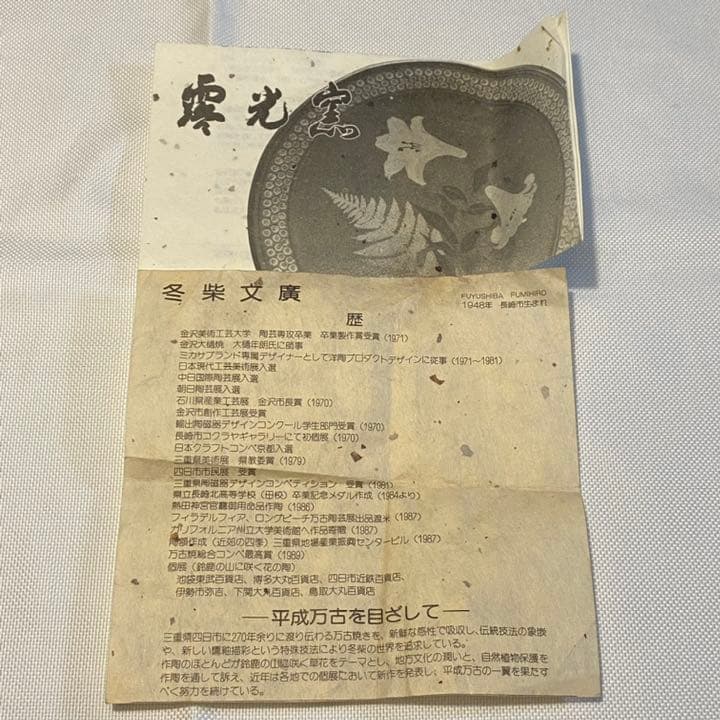 零光窯
冬柴文廣
FUYUSHIBA FUMIHIRO
1948年 長崎市生まれ
歴
金沢美術工芸大学 陶芸専攻卒業 卒業製作賞受賞(1971)
金沢大樋焼 大樋年朗氏に師事
ミカサブランド専属デザイナーとして洋陶プロダクトデザインに従事(1971〜1981)
日本現代工芸美術展入選
中日国際陶芸展入選
朝日陶芸展入選
石川県産業工芸展 金沢市長賞(1970)
金沢市創作工芸展受賞
輸出陶磁器デザインコンクール学生部門受賞(1970)
長崎市コクラヤギャラリーにて初個展(1970)
日本クラフトコンペ京都入選
三重県美術展 県教委賞(1979)
四日市市民展 受賞
三重県陶磁器デザインコンペティション 受賞(1981)
県立長崎北高等学校(母校)卒業記念メダル作成(1984より)
熱田神宮官廳御用命品作陶(1986)
フィラデルフィア、ロングビーチ万古陶芸展出品渡米(1987)
カリフォルニア州立大学美術館へ作品寄贈(1987)
陶額作成(近郊の四季)三重県地場産業振興センタービル(1987)
万古焼総合コンペ最高賞(1989)
個展(鈴鹿の山に咲く花の陶)
池袋東武百貨店、博多大丸百貨店、四日市近鉄百貨店、
伊勢市弥吉、下関大丸百貨店、鳥取大丸百貨店
―平成万古を目ざして―
三重県四日市に270年余りに渡り伝わる万古焼きを、新鮮な感性で吸収し、伝統技法の象嵌
や、新しい鷹釉描彩という特殊技法により冬柴の世界を追求している。
作陶のほとんどが鈴鹿の山脇に咲く草花をテーマとし、地方文化の潤いと、自然植物保護を
作陶を通して訴え、近年は各地での個展において新作を発表し、平成万古の一翼を果たす
べく努力を続けている。